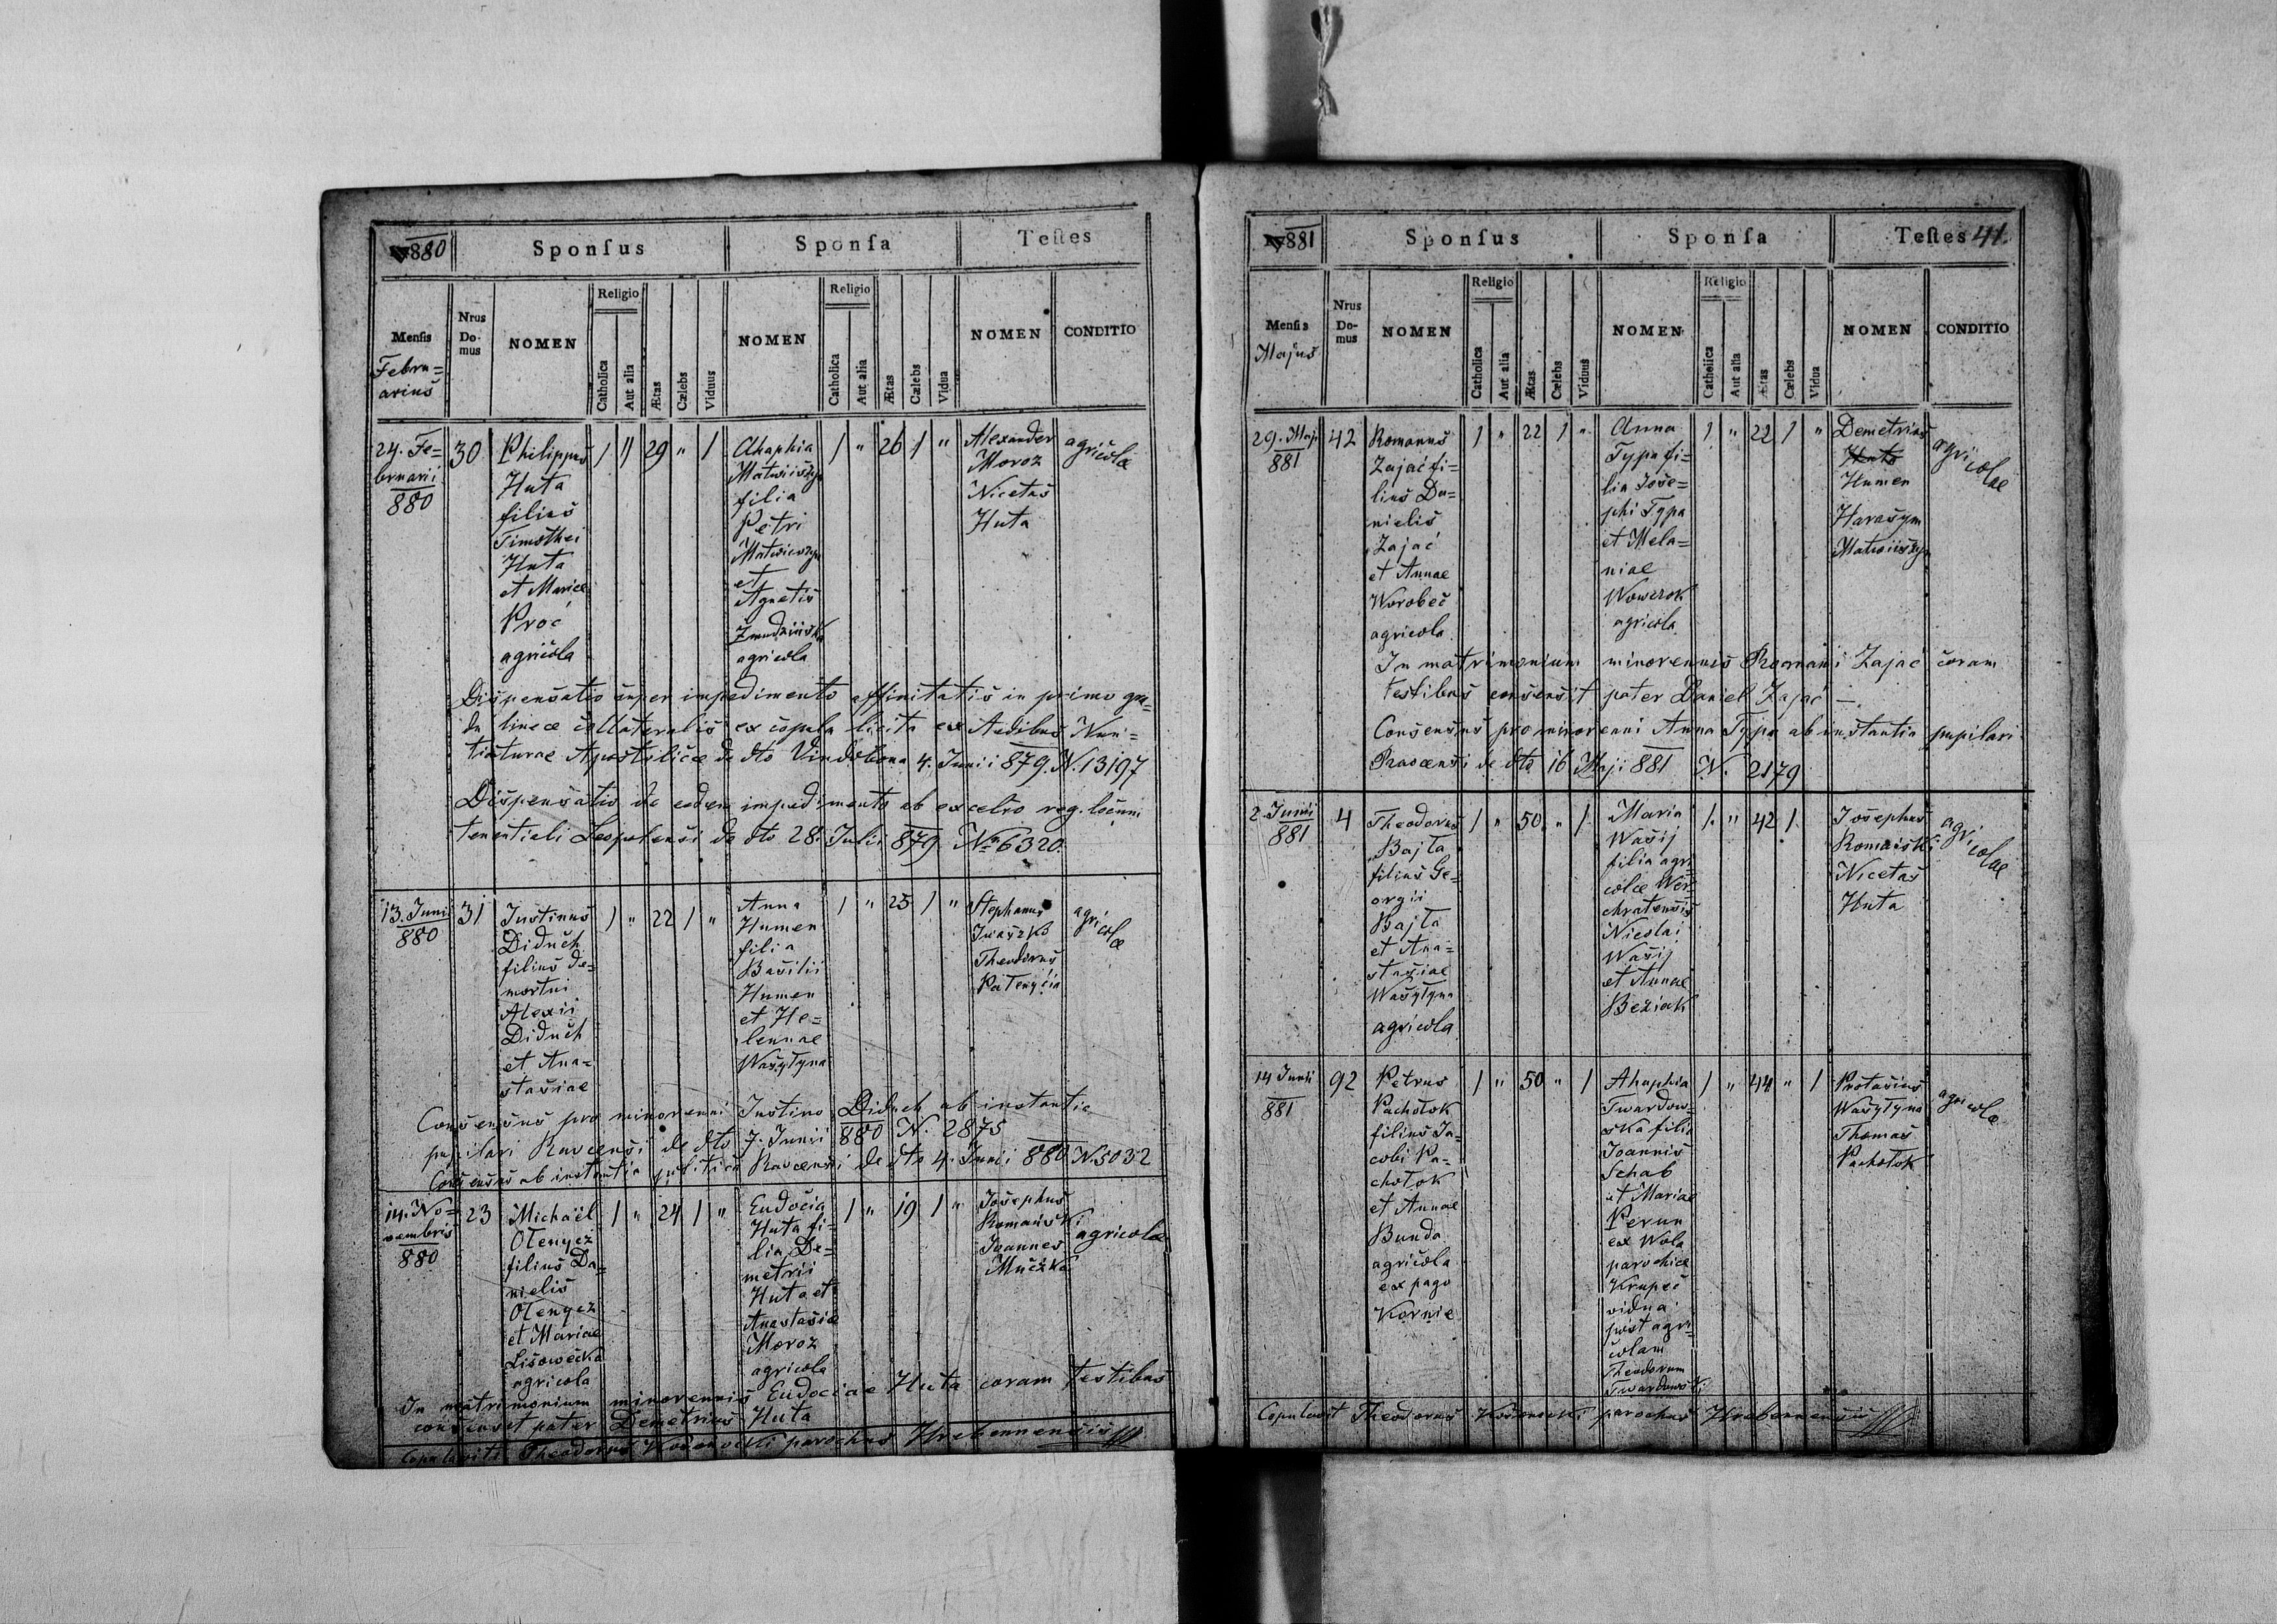 880
Sponsus
Sponsa
Testes
Mensis
Febru=
arius
Nrus
Do-
mus
NOMEN
Religio
Catholica
Aut alia
Ætas
Cælebs
Viduus
NOMEN
Religio
Catholica
Aut alia
Ætas
Cælebs
Vidua
NOMEN
CONDITIO
24. Fe=
bruarii
880
30
Philippus
Huta
filius
Timothei
Huta
et Mariae
Proć
agricola
1
"
29
"
1
Ahaphia
filia
Petri
et
Agnetis
agricola
1
"
26
1
"
Alexander
Moroz
Nicetas
Huta
agricolae
Dispensatio super impedimento affinitatis in primo gra=
du lineae collateralis ex copula licita ex Aedibus Nun=
tiaturae Apostolicae de dto Vindobona 4. Junii 879. N. 13197
Dispensatio de eodem impedimento ab excelso reg. locum
tenentiali Leopoliensi de dto 28. Julii 879 No 6320.
13. Junii
880
31
Justinus
Diduch
filius de=
mortui
Alexii
Diduch
et Ana=
stasiae
1
"
22
1
"
Anna
Humen
filia
Basilii
Humen
et He=
lennae
Wasyłyna
1
"
25
1
"
Stephanus
Iwaszko
Theodorus
agricolae
Consensus pro minorenni Justino Diduch ab instantia
pupilari Ravcensi de dto 7. Junii 880 N. 2875
Consensus ab instantia politica Ravcensi de dto 4. Junii 880 N. 5032
14. No=
vembris
880
23
Michaël
Ołenycz
filius Da=
nielis
Ołenycz
et Mariae
Lisowecka
agricola
1
"
24
1
"
Eudocia
Huta fi=
lia De=
metrii
Huta et
Anastasiae
Moroz
agricola
1
"
19
1
"
Josephus
Romański
Joannes
Mućzka
agricolae
In matrimonium minorennis Eudociae Huta coram testibus
consensit pater Demetrius Huta
Copulavit Theodorus Kosonocki parochus Hrebennensis
881
Sponsus
Sponsa
Testes 41.
Mensis
Majus
Nrus
Do-
mus
NOMEN
Religio
Catholica
Aut alia
Ætas
Cælebs
Viduus
NOMEN
Religio
Catholica
Aut alia
Ætas
Cælebs
Vidua
NOMEN
CONDITIO
29. Maji
881
42
Romanus
Zając fi=
lius Da=
nielis
Zając
et Annae
Worobeć
agricola
1
"
22
1
"
Anna
Typa fi=
lia Jose=
phi Typa
et Mela=
niae
Wowczok
agricola
1
"
22
1
"
Demetrius
Huta
Humen
Harasym
agricolae
In matrimonium minorennis Romani Zając coram
testibus consensit pater Daniel Zając —
Consensus pro minorenni Anna Typa ab instantia pupilari
Ravcensi de dto 16 Maji 881 N. 2179
2. Junii
881
4
Theodorus
Bajła
filius Ge=
orgii
Bajła
et Ana=
stasiae
Wasyłyna
agricola
1
"
50
"
1
Maria
Wasij
filia agri
colae Wer=
chratensis
Nicolai
Wasij
et Annae
Beziak
1
"
42
1
Josephus
Romański
Nicetas
Huta
agricolae
14 Junii
881
92
Petrus
Pachołok
filius Ja=
cobi Pa=
chołok
et Annae
Bunda
agricola
ex pago
Kornie
1
"
50
"
1
Ahaphia
Twardow=
ska filia
Joannis
Schab
et Mariae
Perun
ex Wola
parochiae
Krupeć
vidua
post agri=
colam
Theodorum
Twardowski
1
"
44
"
1
Protasius
Wasyłyna
Thomas
Pachołok
agricolae
Copulavit Theodorus Kosonocki parochus Hrebennensis